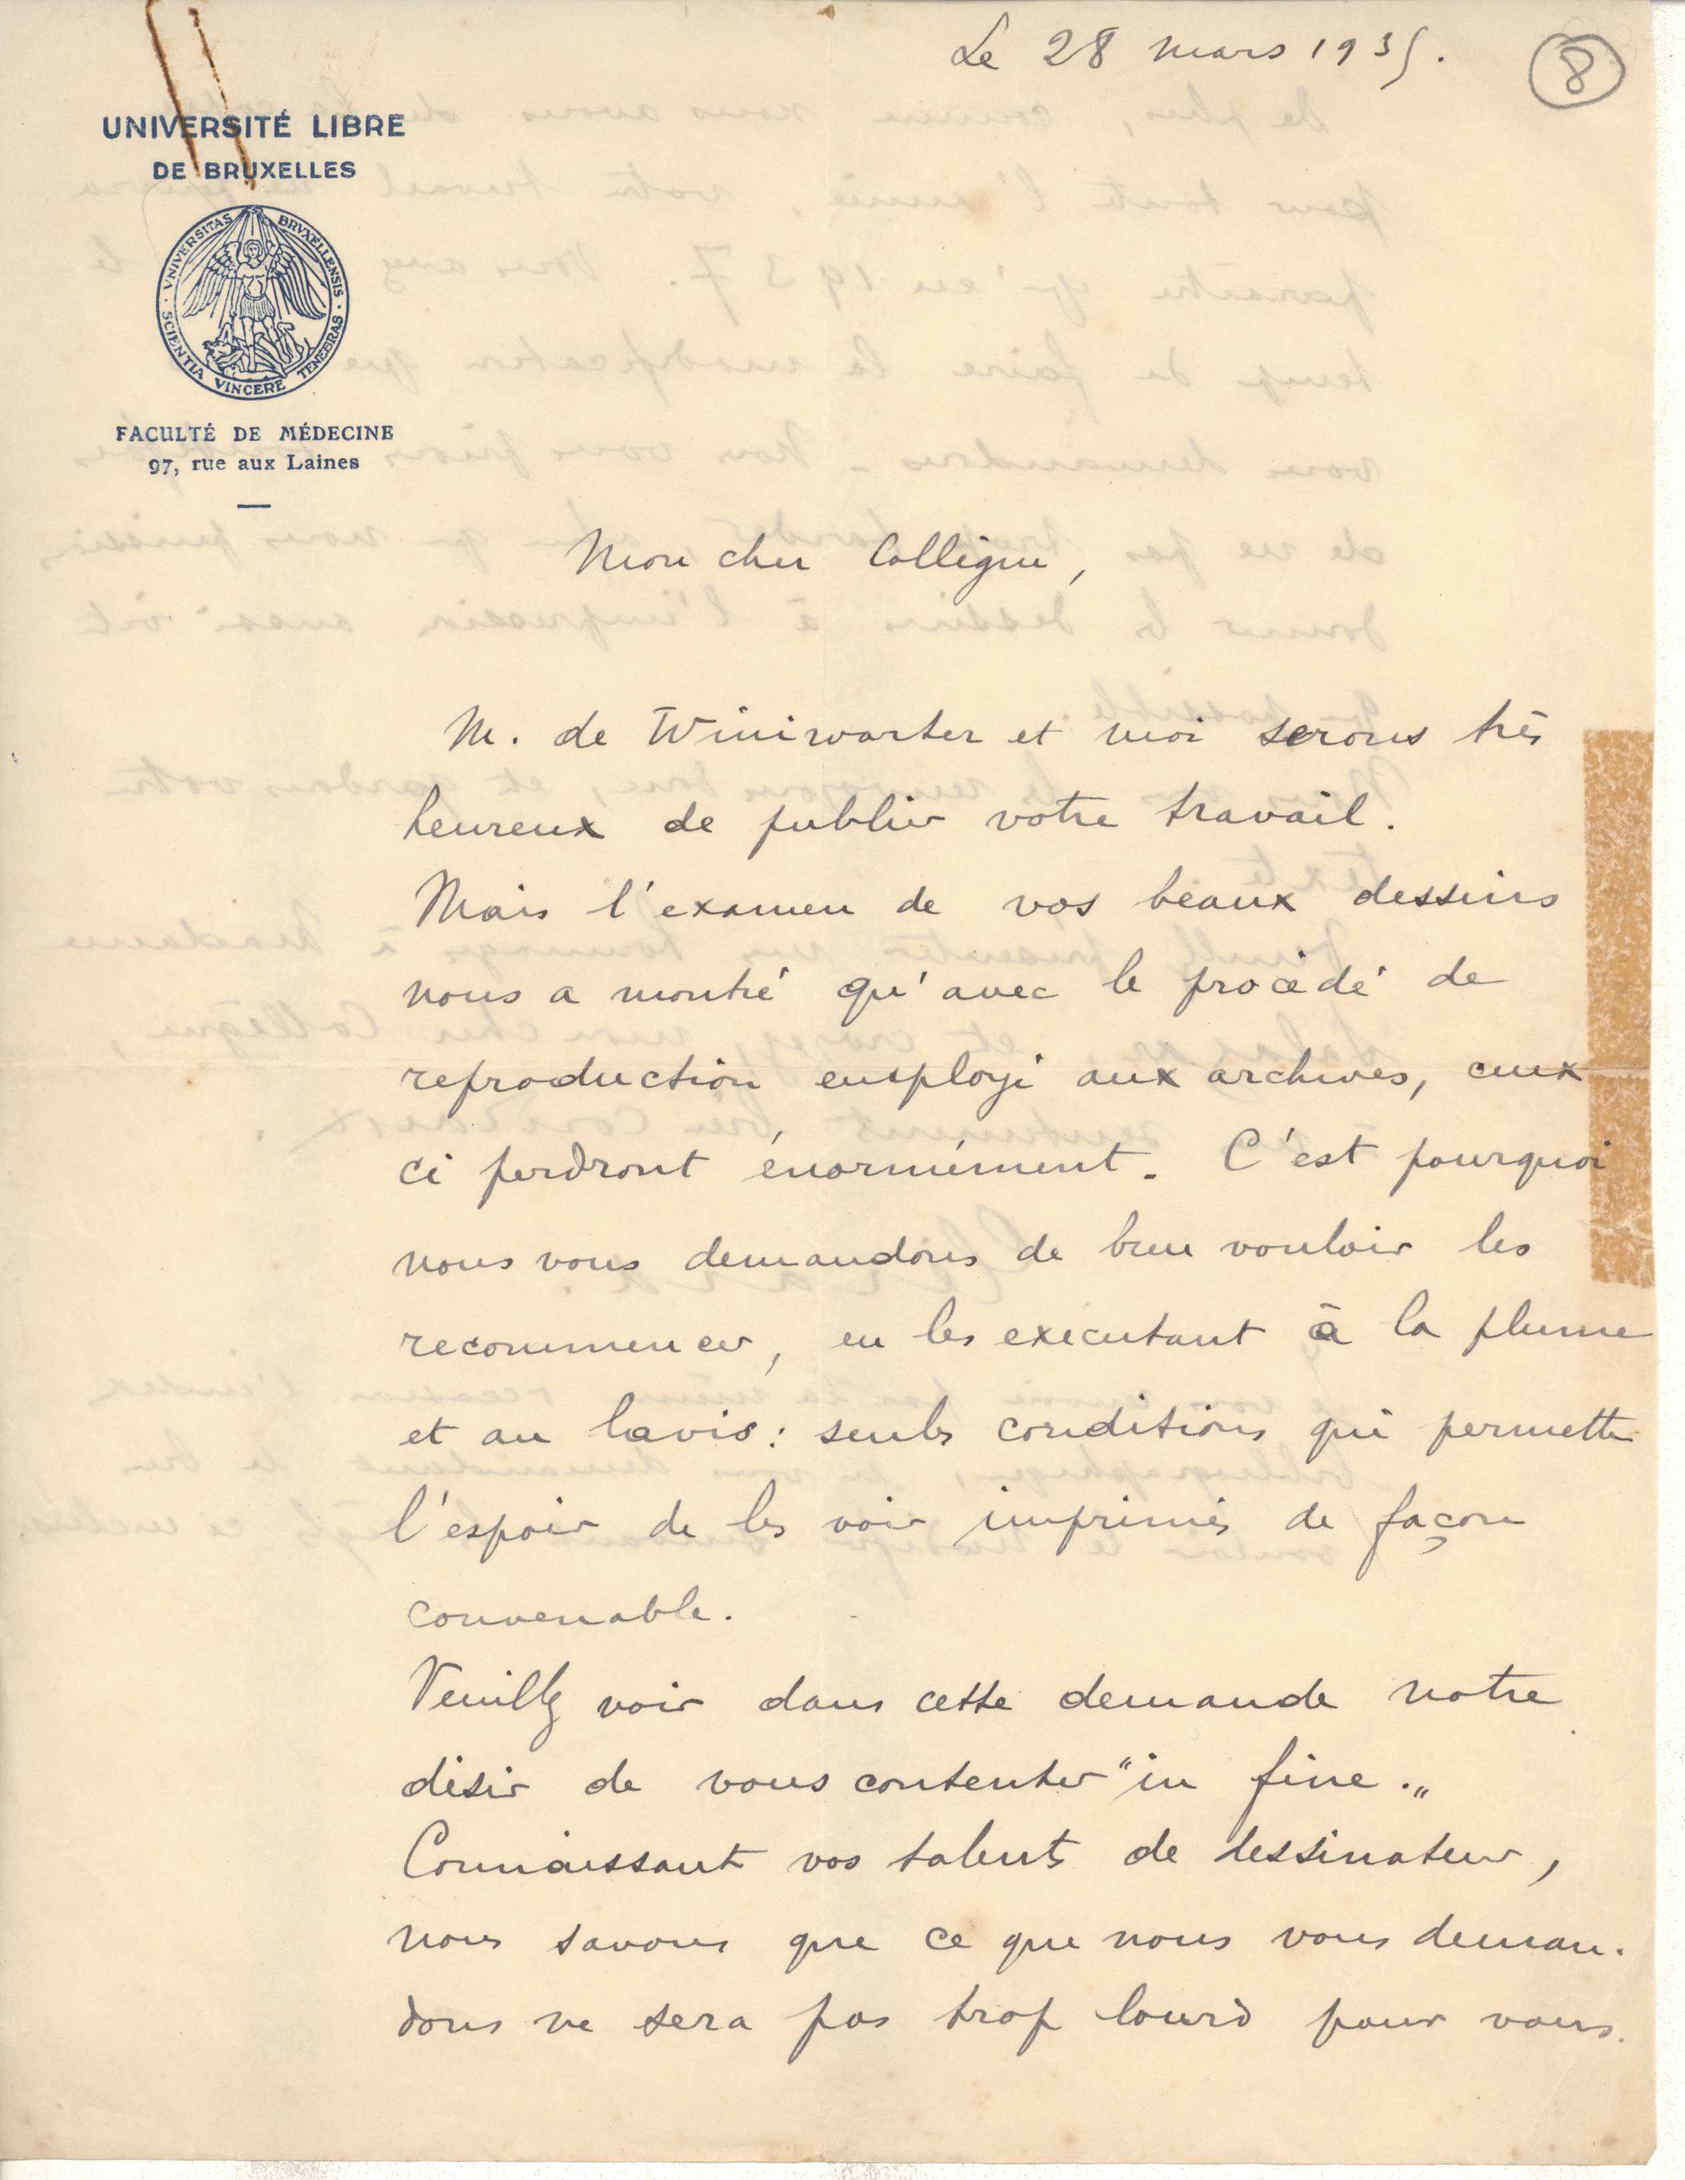 Le 28 mars 1935.
8
UNIVERSITÉ LIBRE
DE BRUXELLES
UNIVERSITAS BRVXELLENSIS
SCIENTIA VINCERE TENEBRAS
FACULTÉ DE MÉDECINE
97, rue aux Laines
Mon cher Collègue,
M. de Winiwarter et moi serons très
heureux de publier votre travail.
Mais l'examen de vos beaux dessins
nous a montré qu'avec le procédé de
reproduction employé aux archives, ceux
ci perdront énormément. C'est pourquoi
nous vous demandons de bien vouloir les
recommencer, en les exécutant à la plume
et au lavis : seules conditions qui permette
l'espoir de les voir imprimés de façon
convenable.
Veuillez voir dans cette demande notre
désir de vous contenter "in fine."
Connaissant vos talents de dessinateur,
nous savons que ce que nous vous deman-
dons ne sera pas trop lourd pour vous.